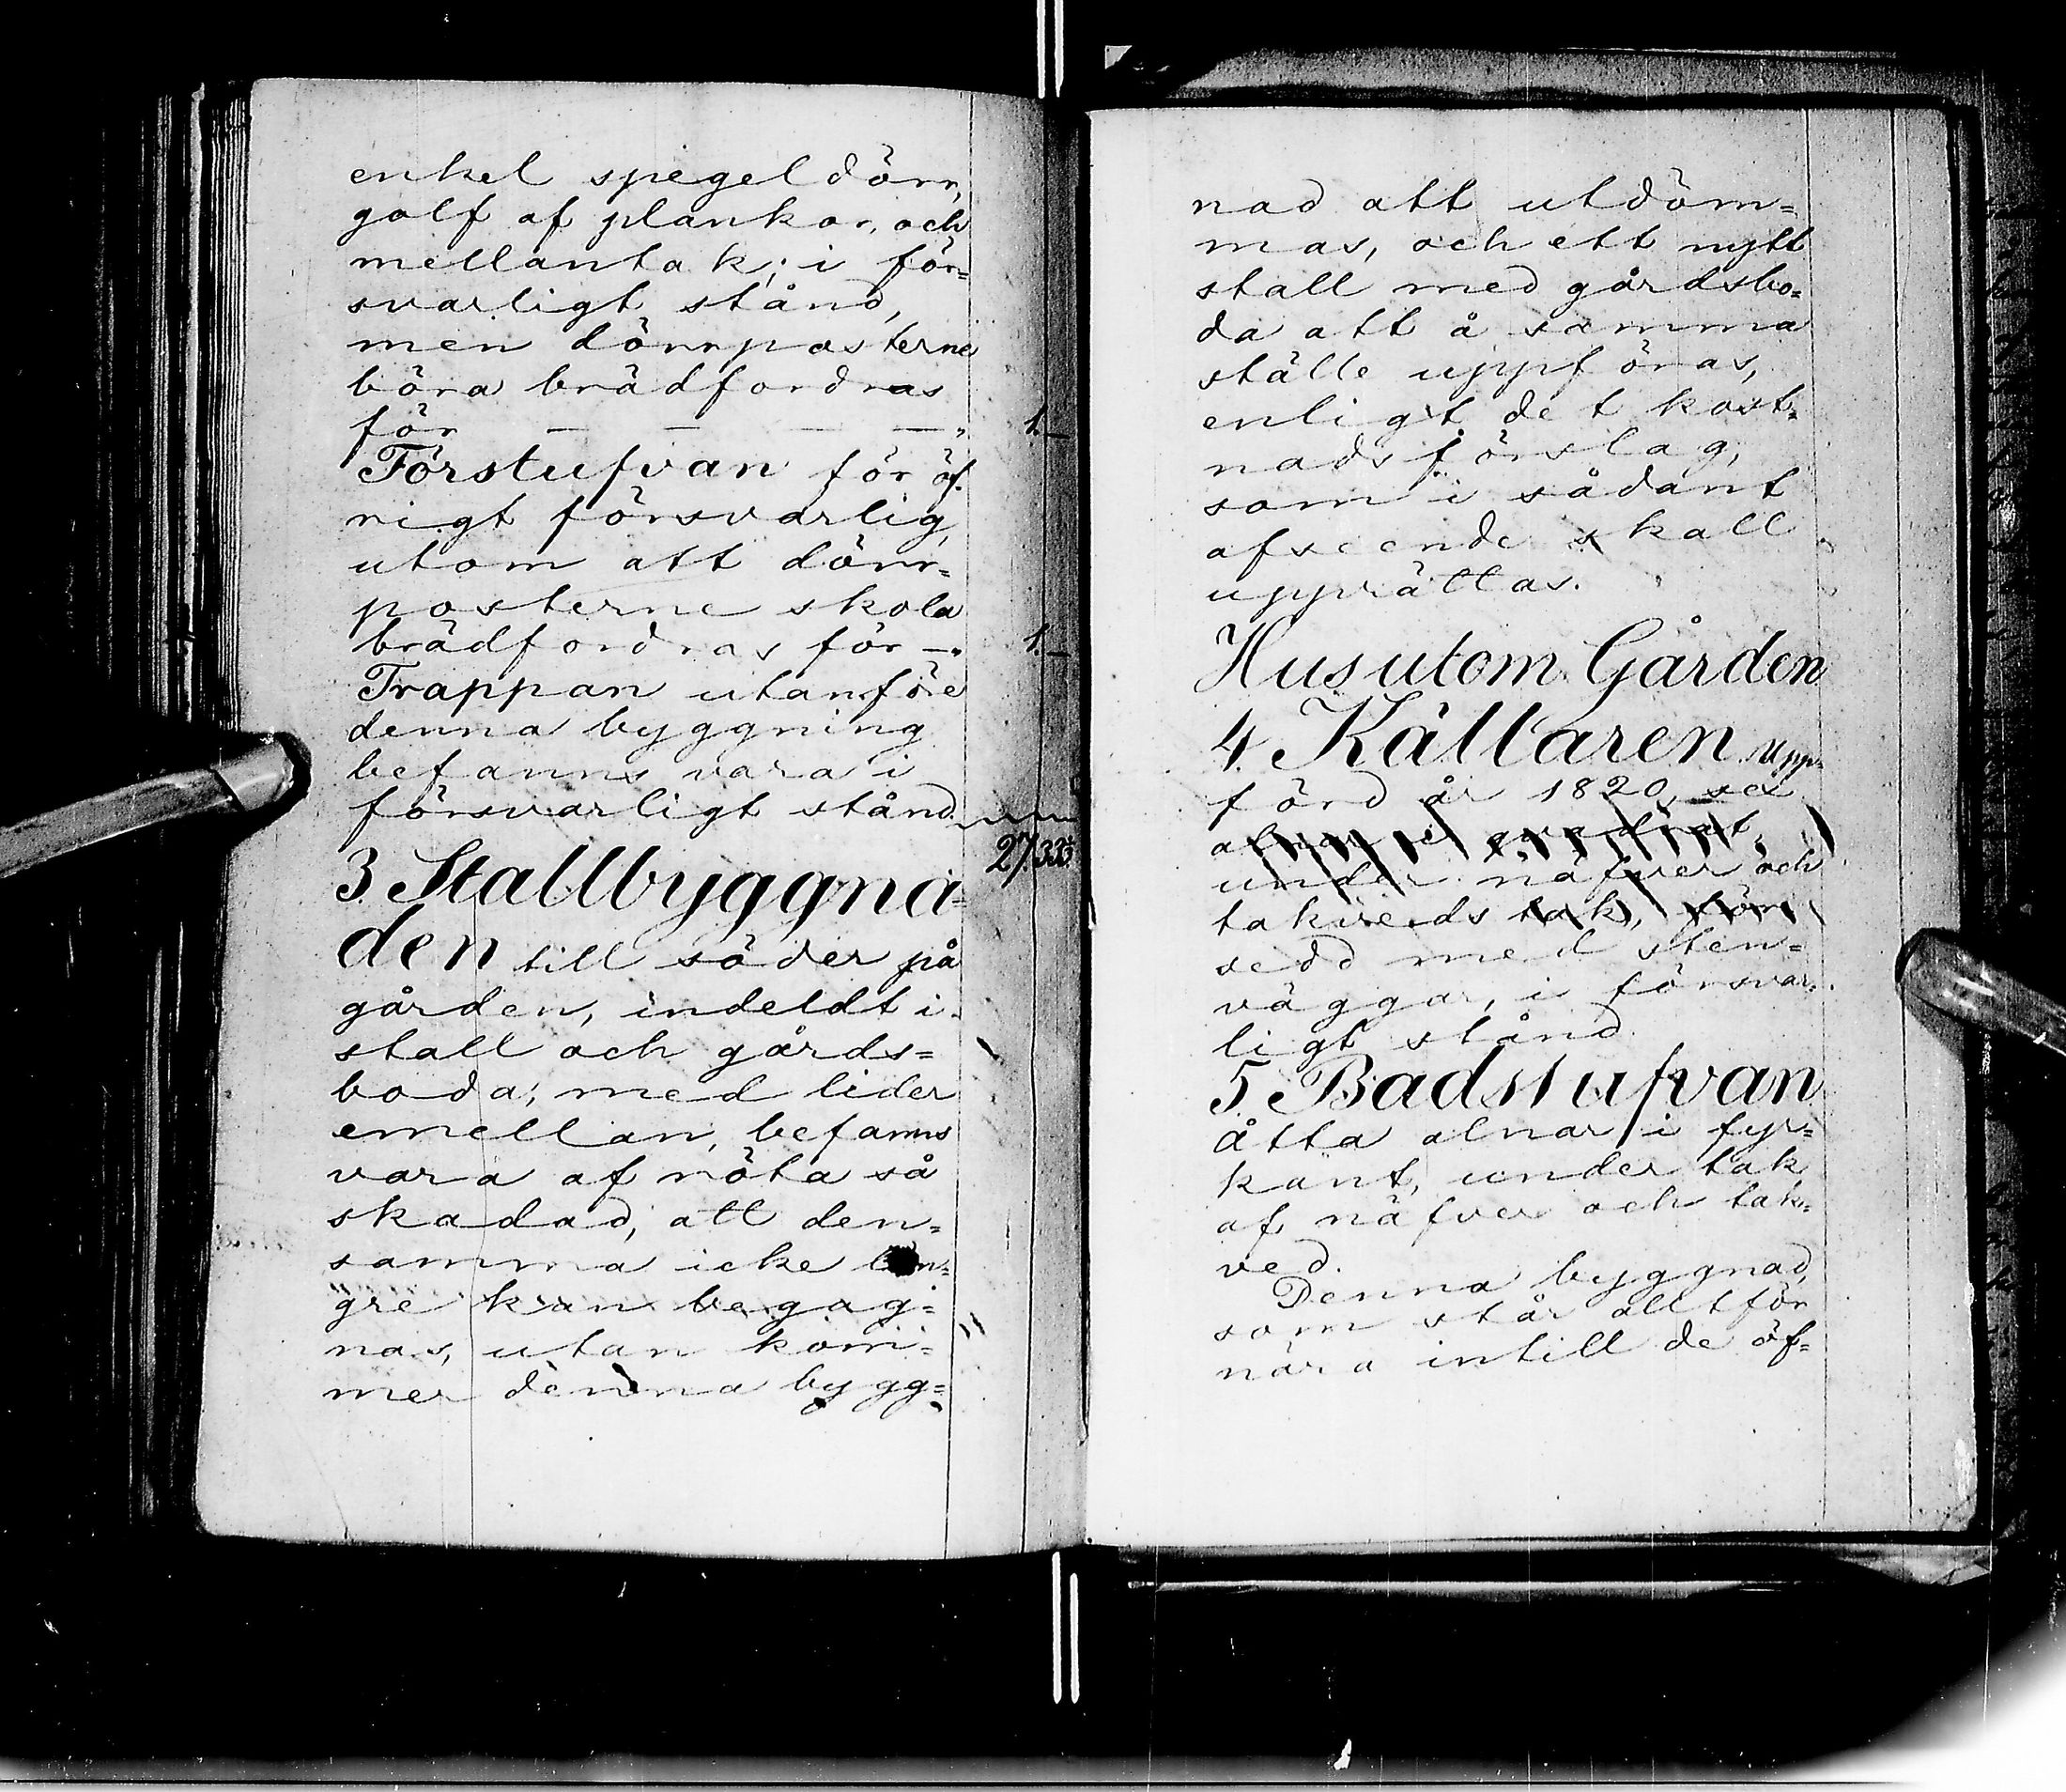 enkel spegeldörr,
golf af plankor, och
mellantak; i för=
svarligt stånd,
men dörrposterne
böra brädfordras
för — — — — „ 1.—
Förstufvan för öf=
rigt försvarlig,
utom att dörr=
posterne skola
brädfordras för —„ 1.—
Trappan utanföre
denna byggning
befanns vara i
försvarligt stånd.
27.335
3. Stallbyggna=
den till söder på
gården, indeldt i
stall och gårds=
boda, med lider
emellan, befanns
vara af röta så
skadad, att den=
samma icke län=
gre kan begag=
nas, utan kom=
mer denna bygg=
nad att utdöm=
mas, och ett nytt
stall med gårdsbo=
da att å samma
ställe uppföras,
enligt det kost=
nadsförslag,
som i sådant
afseende skall
upprättas.
Hus utom Gården
4. Källaren upp=
förd år 1820, sex
alnar i quadrat,
under näfver och
takveds tak, för=
sedd med sten=
väggar, i försvar=
ligt stånd.
5. Badstufvan
åtta alnar i fyr=
kant, under tak
af näfver och tak=
ved.
Denna byggnad,
som står alltför
nära intill de öf=